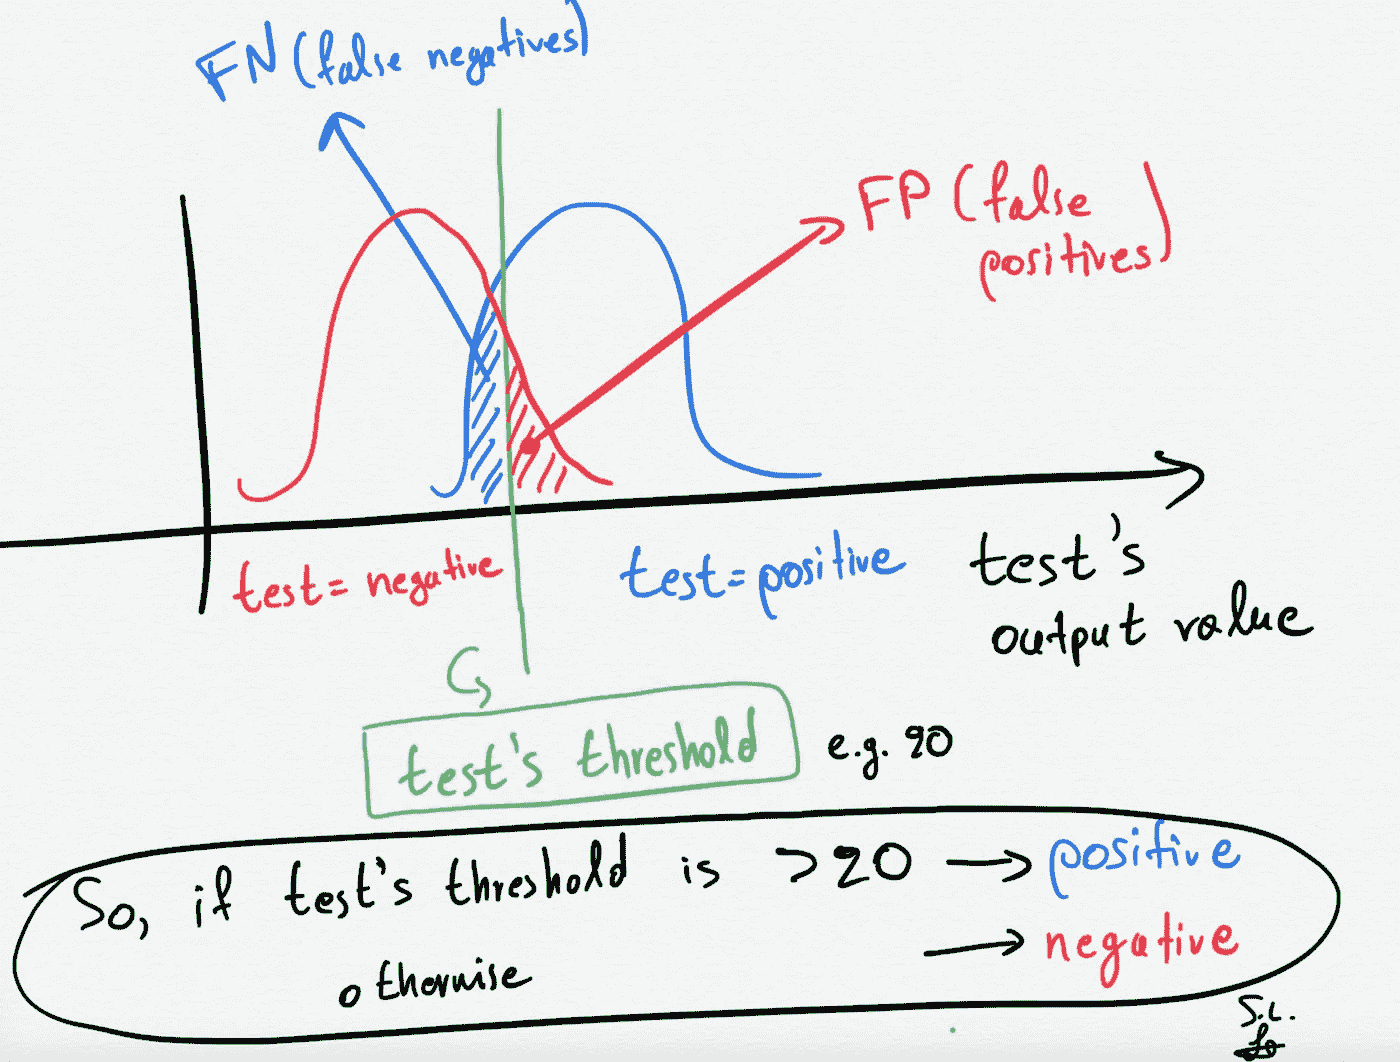 FN (false negatives)
FP (false
positives)
test = negative
test = positive
test's
output value
test's threshold
e.g. 20
So, if test's threshold is >20 → positive
otherwise → negative
S.L.